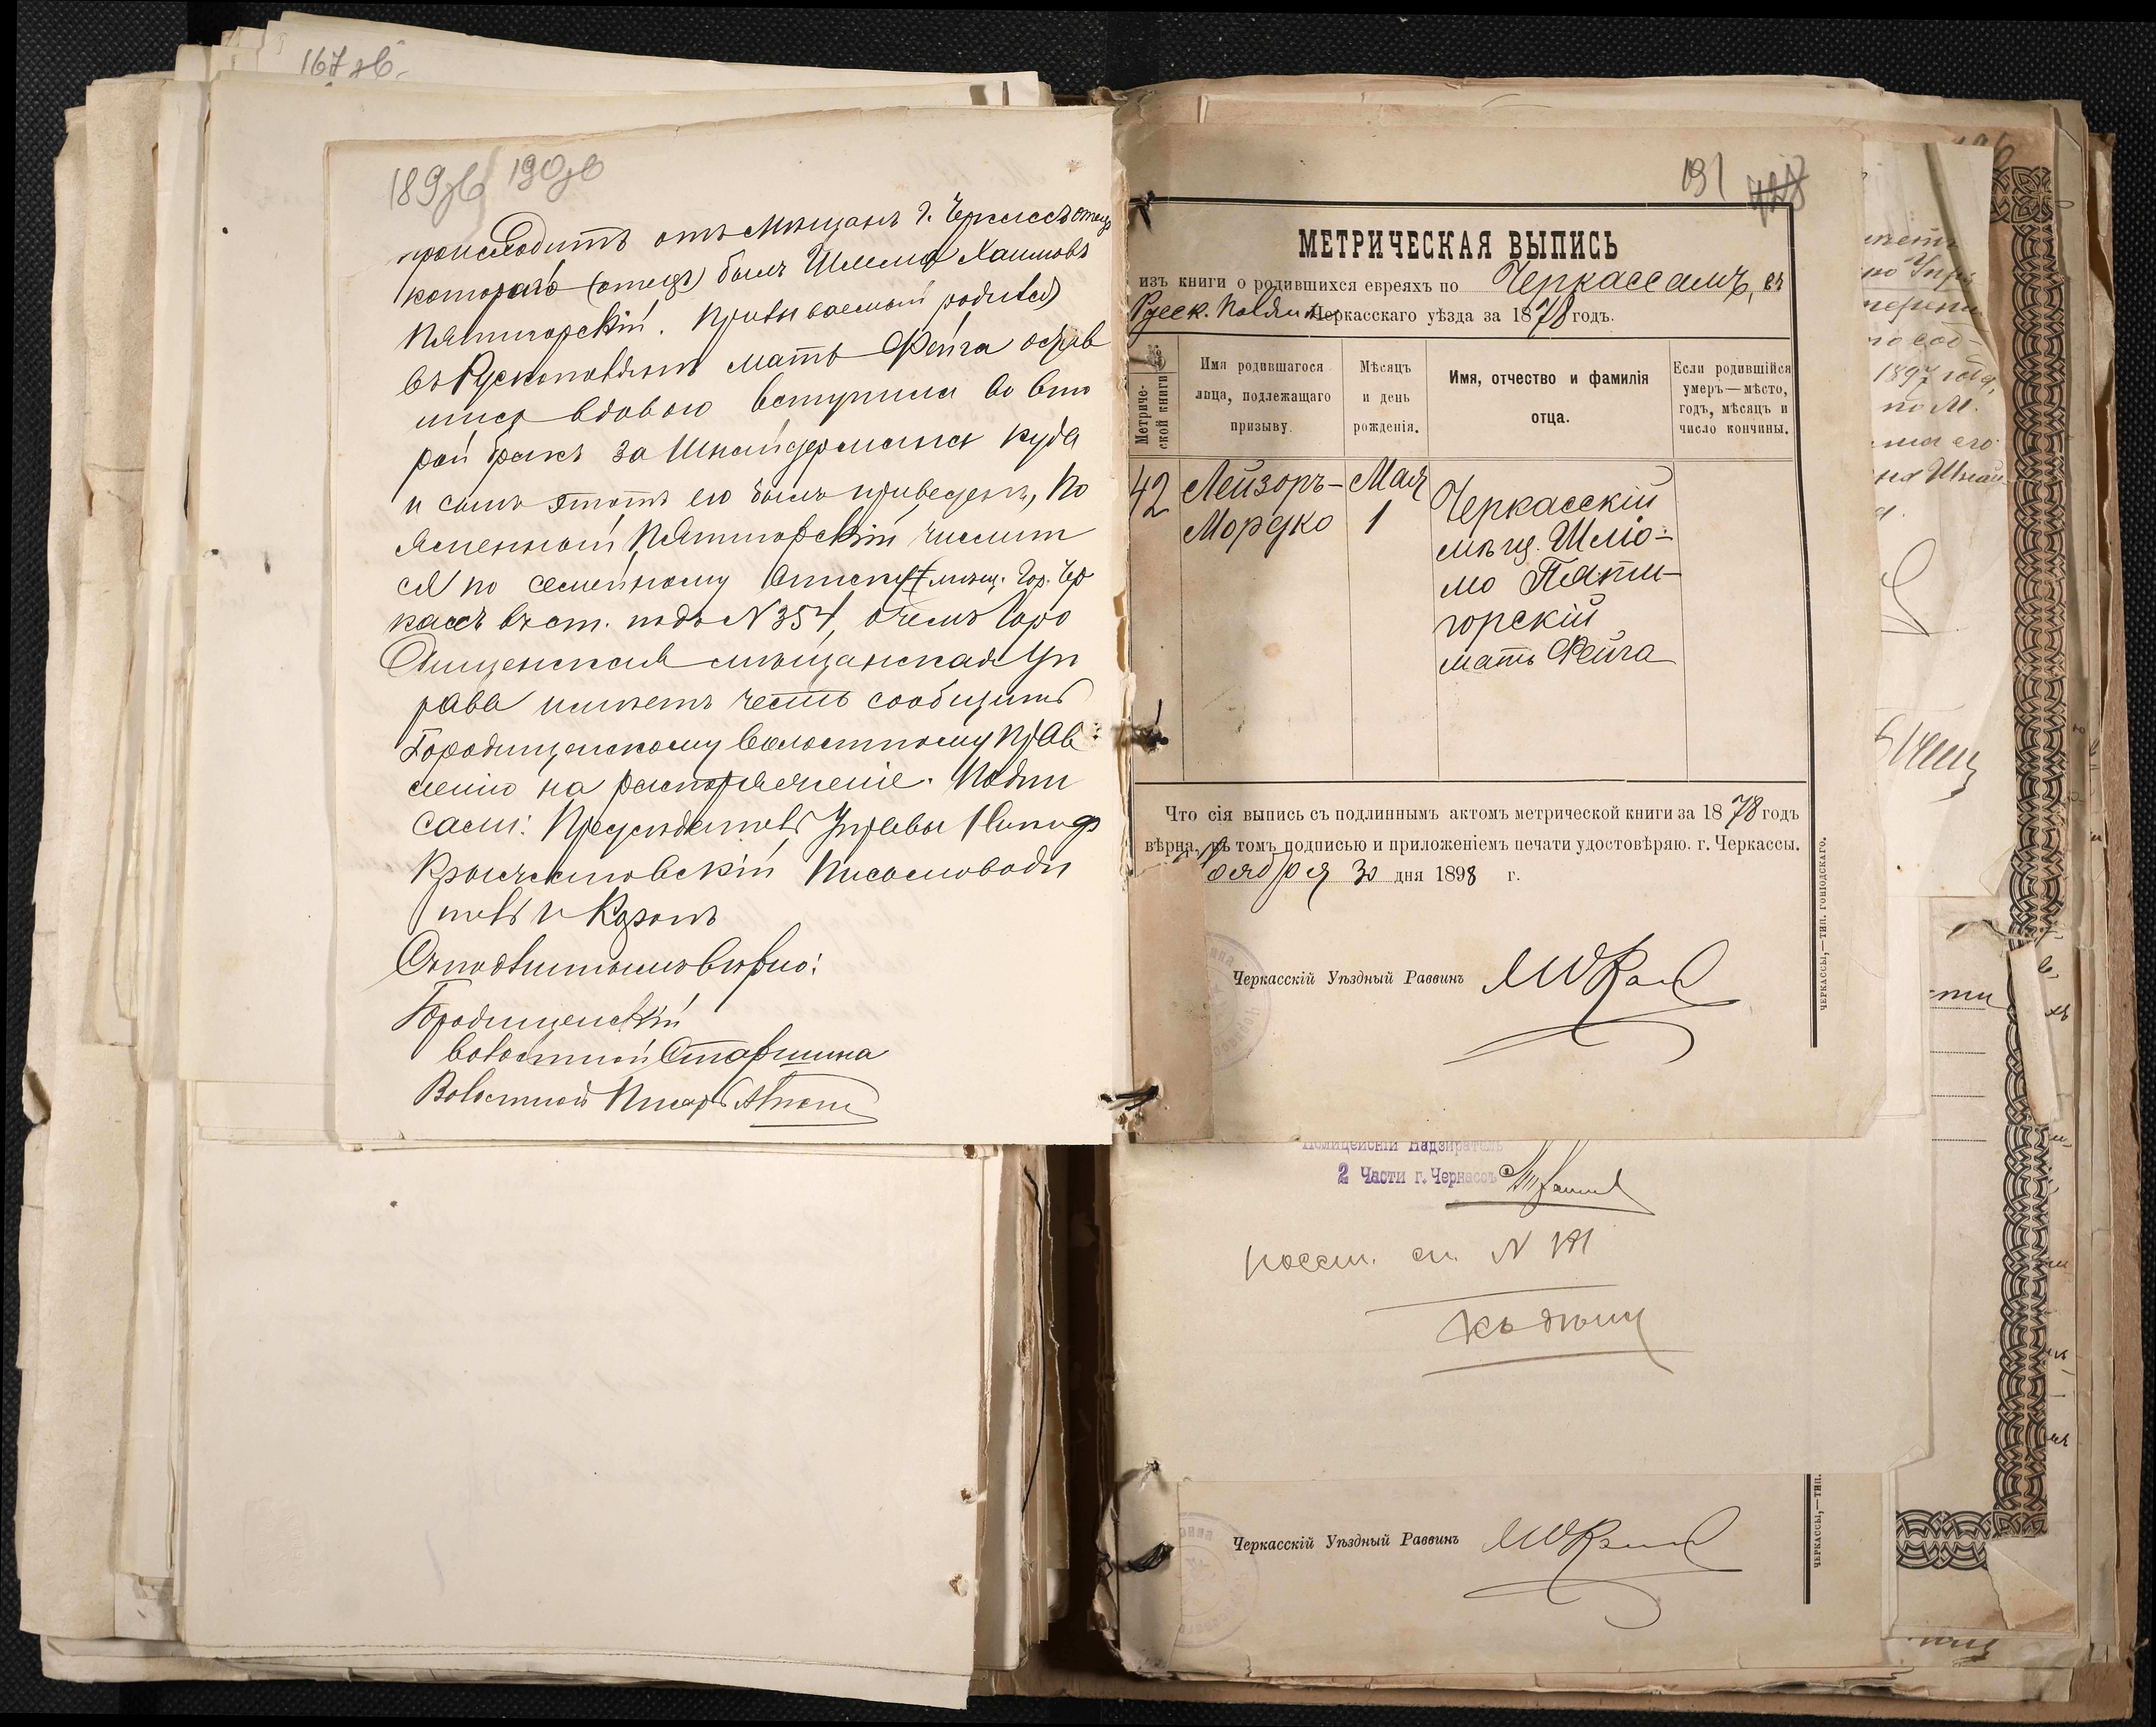 167 об.
189 об 190 об
происходитъ отъ мѣщанъ г. Черкассъ отецъ
котораго (отецъ) былъ Шлема Хаимовъ
Пятигорскій. Призываемый родился
въ Русскополянѣ мать Фейга остав
шись вдовою вступила во вто
рой бракъ за Шнайдермана куда
и сынъ этотъ ею былъ приведенъ, По
ясненный Пятигорскій числит
ся по семейному списку мѣщ. Гор. Чер
кассъ въ ст. подъ №354, о чемъ Горо
дищенская мѣщанская Уп
рава имѣетъ честь сообщить
Городищенскому Волостному Прав
ленію на распоряженіе. Подпи
сали: Предсѣдатель Управы
Письмоводи
тель Козакъ
Съ подлиннымъ вѣрно:
Городищенскій
Волостной Старшина
Волостной Писарь
191 428
МЕТРИЧЕСКАЯ ВЫПИСЬ
изъ книги о родившихся евреяхъ по Черкассамъ, съ
Русск. Поляною Черкасскаго уѣзда за 1878 годъ.
№ Метриче-
ской книги
Имя родившагося
лица, подлежащаго
призыву.
Мѣсяцъ
и день
рожденія.
Имя, отчество и фамилія
отца.
Если родившійся
умеръ—мѣсто,
годъ, мѣсяцъ и
число кончины.
42
Лейзоръ-
Мордко
Мая
1
Черкасскій
мѣщ. Шліо-
мо Пяти-
горскій
мать Фейга
Что сія выпись съ подлиннымъ актомъ метрической книги за 1878 годъ
вѣрна, въ томъ подписью и приложеніемъ печати удостовѣряю. г. Черкассы.
Ноября 30 дня 1898 г.
Черкасскій Уѣздный Раввинъ
ЧЕРКАССЫ,—ТИП. ГОНІОДСКАГО.
Полицейскій Надзиратель
2 Части г. Черкассъ
къ дѣлу
Черкасскій Уѣздный Раввинъ
ЧЕРКАССЫ,—ТИП.
1897 года,